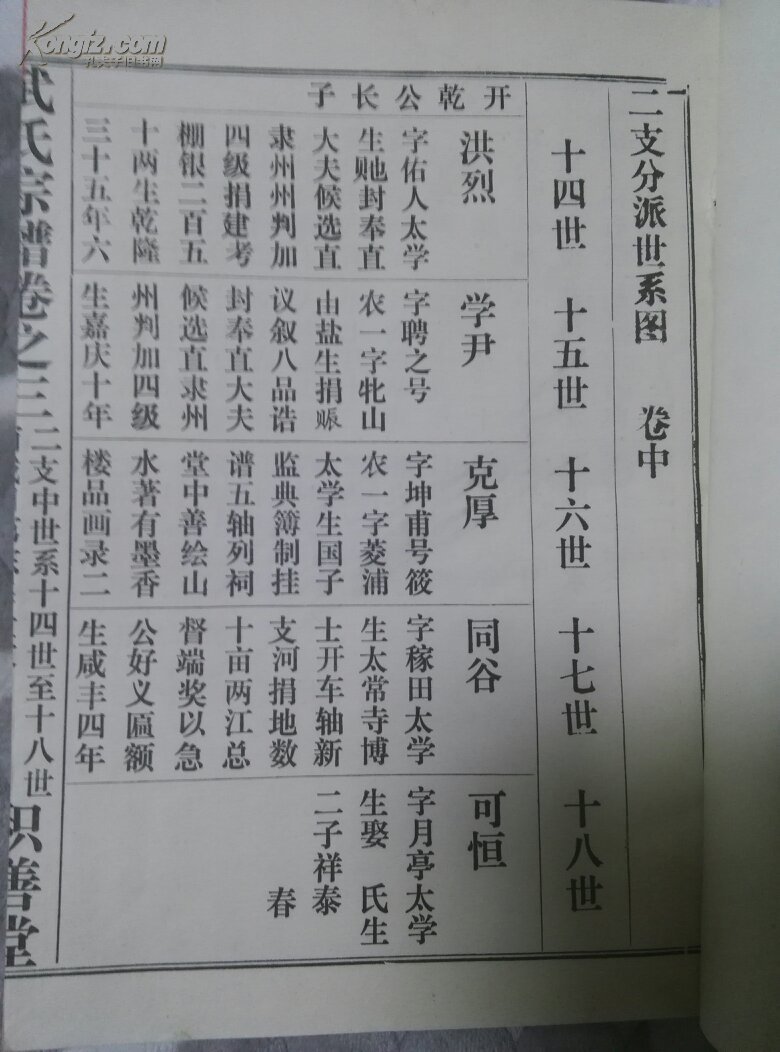 Kongfz.com
孔夫子旧书网
二支分派世系图 卷中
十四世 十五世 十六世 十七世 十八世
开乾公长子
洪烈
字佑人太学
生貤封奉直
大夫候选直
隶州州判加
四级捐建考
棚银二百五
十两生乾隆
三十五年六
学尹
字聘之号
农一字牝山
由盐生捐赈
议叙八品诰
封奉直大夫
候选直隶州
州判加四级
生嘉庆十年
克厚
字坤甫号筱
农一字菱浦
太学生国子
监典簿制挂
谱五轴列祠
堂中善绘山
水著有墨香
楼品画录二
同谷
字稼田太学
生太常寺博
士开车轴新
支河捐地数
十亩两江总
督端奖以急
公好义匾额
生咸丰四年
可恒
字月亭太学
生娶 氏生
二子祥泰
春
武氏宗谱卷之三 二支中世系十四世至十八世 积善堂